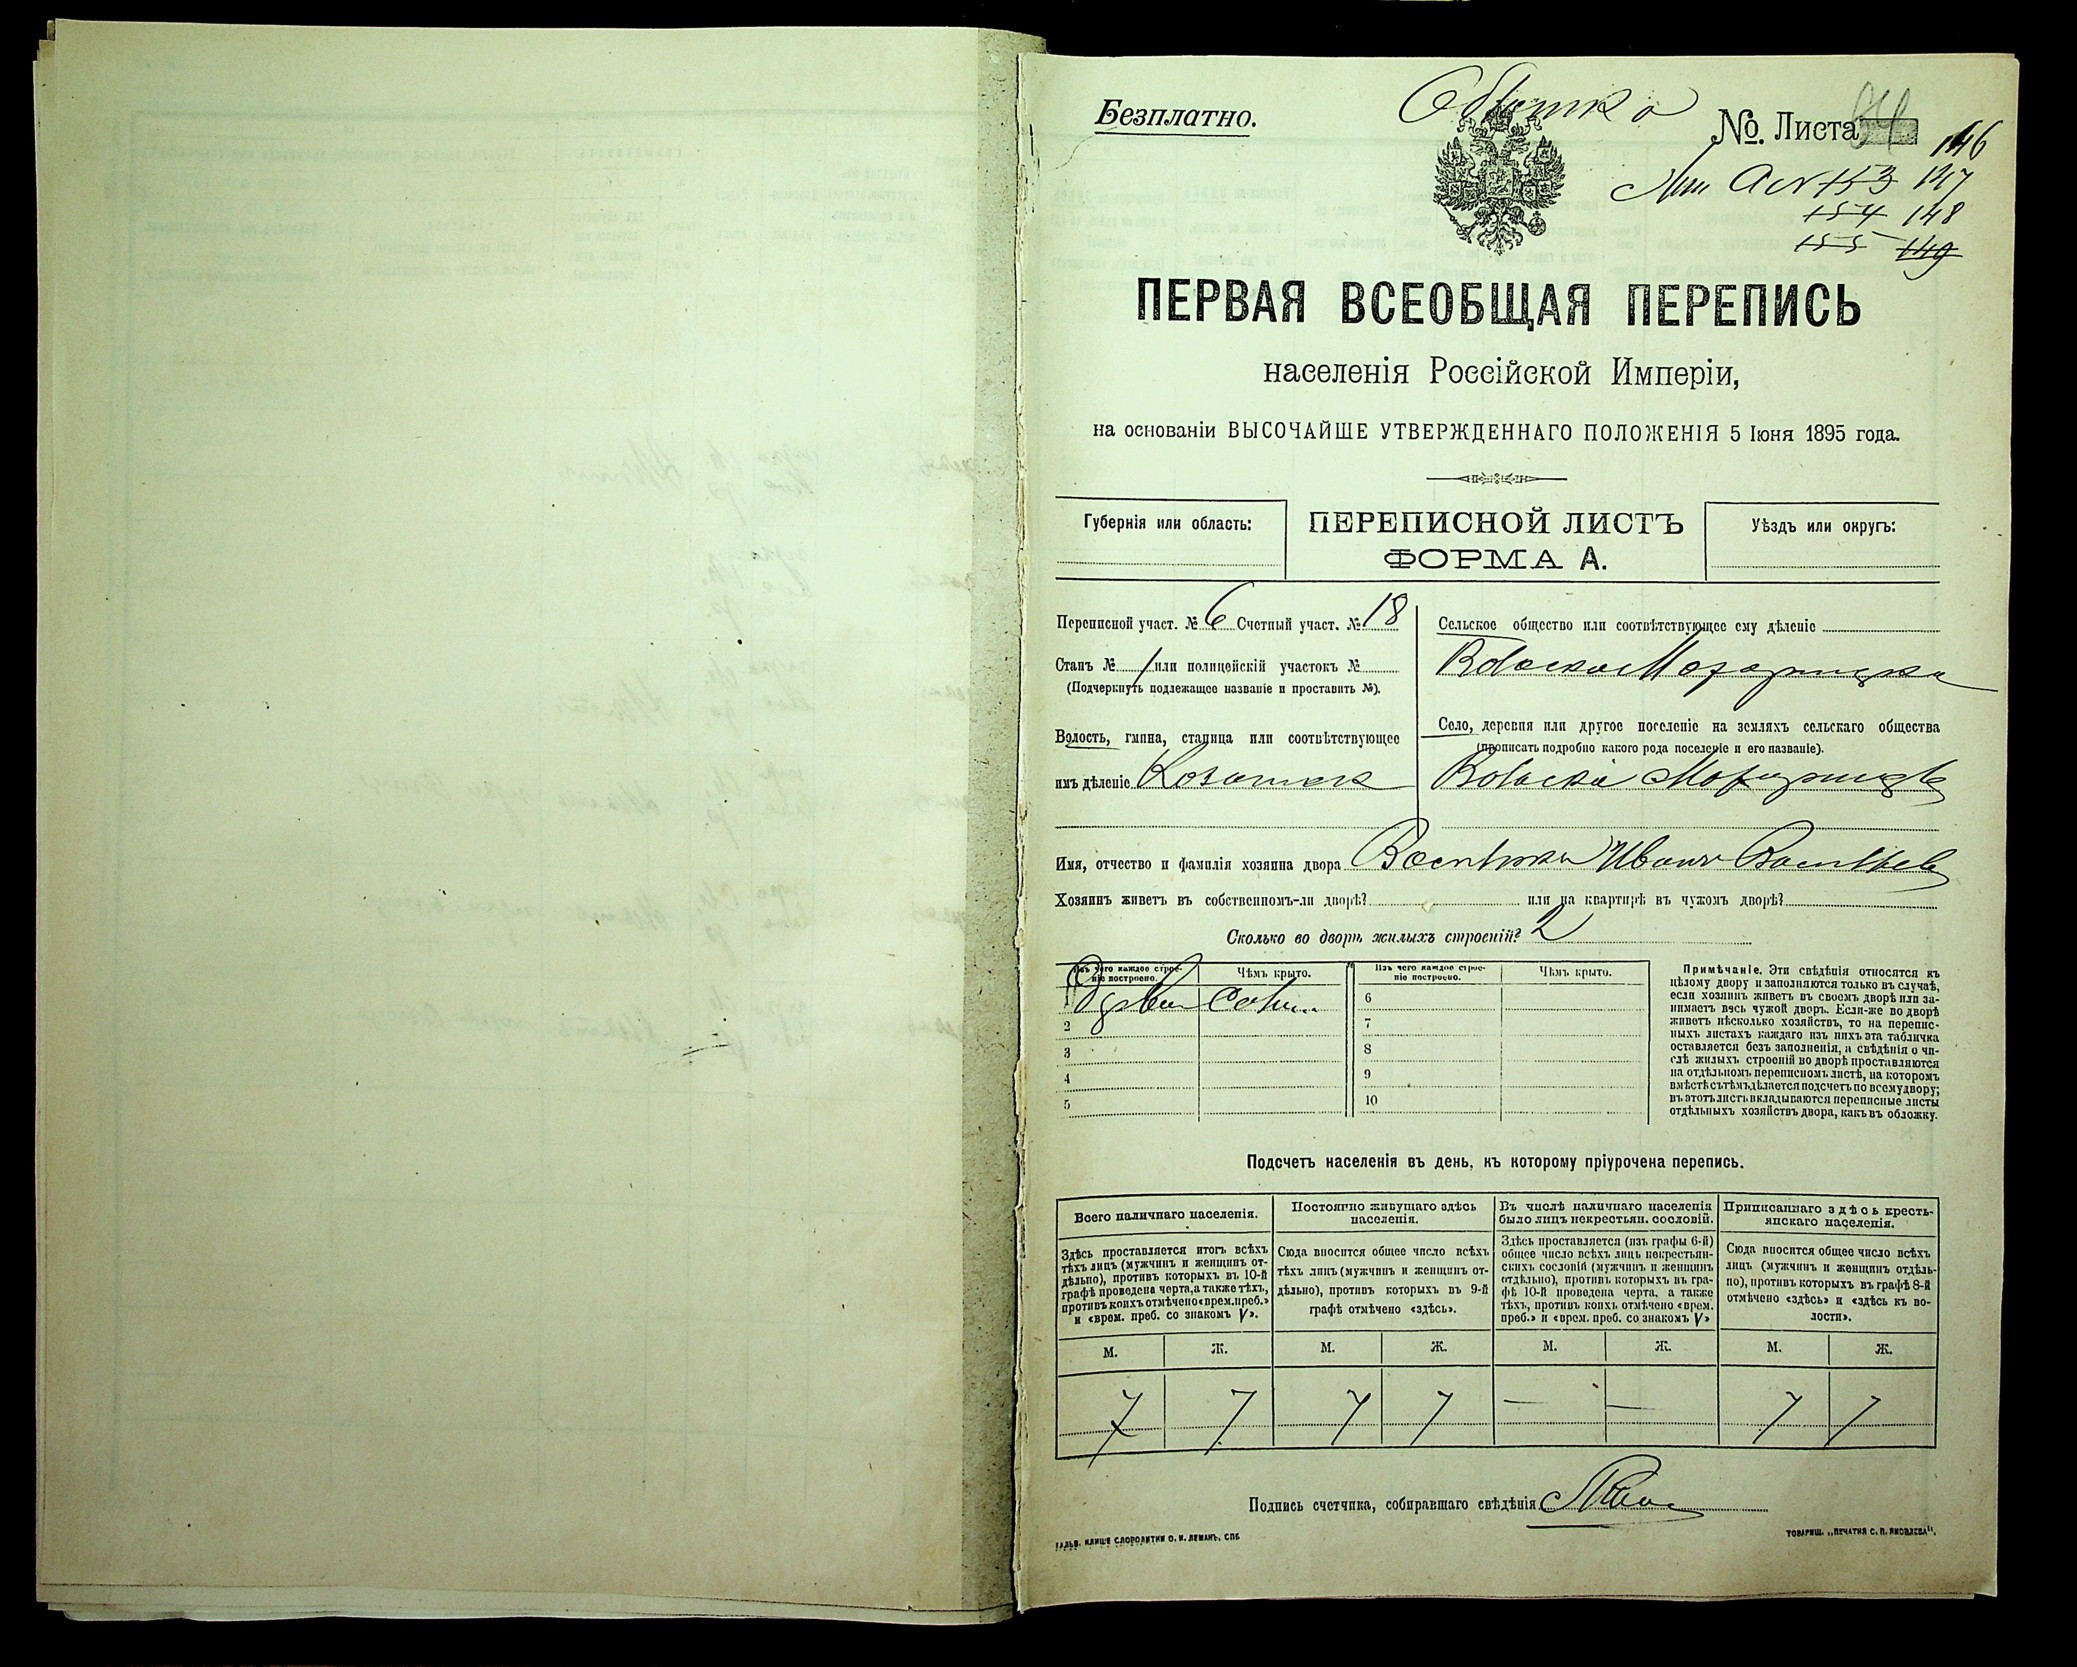 Безплатно.
Обложка
№. Листа 84
146
А № 153 147
154 148
155 149
ПЕРВАЯ ВСЕОБЩАЯ ПЕРЕПИСЬ
населенія Россійской Имперіи,
на основаніи ВЫСОЧАЙШЕ УТВЕРЖДЕННАГО ПОЛОЖЕНІЯ 5 Іюня 1895 года.
Губернія или область:
ПЕРЕПИСНОЙ ЛИСТЪ
ФОРМА А.
Уѣздъ или округъ:
Переписной участ. № 6 Счетный участ. № 18
Станъ № 1 или полицейскій участокъ №
(Подчеркнуть подлежащее названіе и проставить №).
Волость, гмина, станица или соотвѣтствующее
имъ дѣленіе
Сельское общество или соотвѣтствующее ему дѣленіе
Село, деревня или другое поселеніе на земляхъ сельскаго общества
(прописать подробно какого рода поселеніе и его названіе).
Имя, отчество и фамилія хозяина двора Иванъ
Хозяинъ живетъ въ собственномъ-ли дворѣ? или на квартирѣ въ чужомъ дворѣ?
Сколько во дворѣ жилыхъ строеній? 2
Изъ чего каждое строеніе построено.
Чѣмъ крыто.
Изъ чего каждое строеніе построено.
Чѣмъ крыто.
1
6
2
7
3
8
4
9
5
10
Примѣчаніе. Эти свѣдѣнія относятся къ
цѣлому двору и заполняются только въ случаѣ,
если хозяинъ живетъ въ своемъ дворѣ или за-
нимаетъ весь чужой дворъ. Если-же во дворѣ
живетъ нѣсколько хозяйствъ, то на перепис-
ныхъ листахъ каждаго изъ нихъ эта табличка
оставляется безъ заполненія, а свѣдѣнія о чи-
слѣ жилыхъ строеній во дворѣ проставляются
на отдѣльномъ переписномъ листѣ, на которомъ
вмѣстѣ съ тѣмъ дѣлается подсчетъ по всему двору;
въ этотъ листъ вкладываются переписные листы
отдѣльныхъ хозяйствъ двора, какъ въ обложку.
Подсчетъ населенія въ день, къ которому пріурочена перепись.
Всего наличнаго населенія.
Здѣсь проставляется итогъ всѣхъ
тѣхъ лицъ (мужчинъ и женщинъ от-
дѣльно), противъ которыхъ въ 10-й
графѣ проведена черта, а также тѣхъ,
противъ коихъ отмѣчено «врем. преб.»
и «врем. преб. со знакомъ V».
Постоянно живущаго здѣсь
населенія.
Сюда вносится общее число всѣхъ
тѣхъ лицъ (мужчинъ и женщинъ от-
дѣльно), противъ которыхъ въ 9-й
графѣ отмѣчено «здѣсь».
Въ числѣ наличнаго населенія
было лицъ некрестьян. сословій.
Здѣсь проставляется (изъ графы 6-й)
общее число всѣхъ лицъ некрестьян-
скихъ сословій (мужчинъ и женщинъ
отдѣльно), противъ которыхъ въ гра-
фѣ 10-й проведена черта, а также
тѣхъ, противъ коихъ отмѣчено «врем.
преб.» и «врем. преб. со знакомъ V»
Приписаннаго здѣсь кресть-
янскаго населенія.
Сюда вносится общее число всѣхъ
лицъ (мужчинъ и женщинъ отдѣль-
но), противъ которыхъ въ графѣ 8-й
отмѣчено «здѣсь» и «здѣсь къ во-
лости».
М. Ж. М. Ж. М. Ж. М. Ж.
7 7 7 7 — — 7 7
Подпись счетчика, собиравшаго свѣдѣнія
ГАЛЬВ. КЛИШЕ СЛОВОЛИТНИ О. И. ЛЕМАНЪ, СПБ.
ТОВАРИЩ. „ПЕЧАТНЯ С. П. ЯКОВЛЕВА".